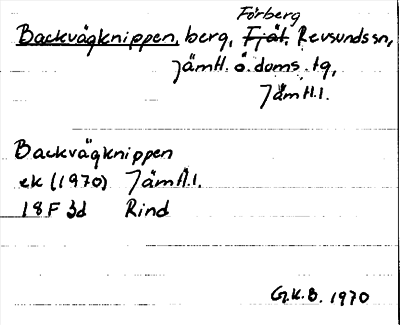 Förberg
Backvägknippen, berg, Fjät, Revsunds sn,
Jämtl. ö. doms. tg,
Jämtl. l.
Backvägknippen
ek (1970) Jämtl. l.
18F 3d Rind
G.K.B. 1970